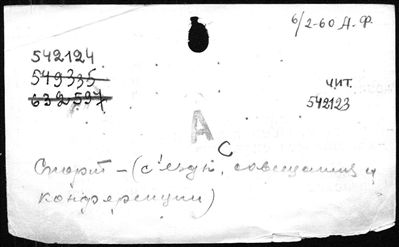 6/2-60 Д.Ф.
542124
549335
632597
чит.
542123
А
С
Спорт – (съезды, совещания и
конференции)